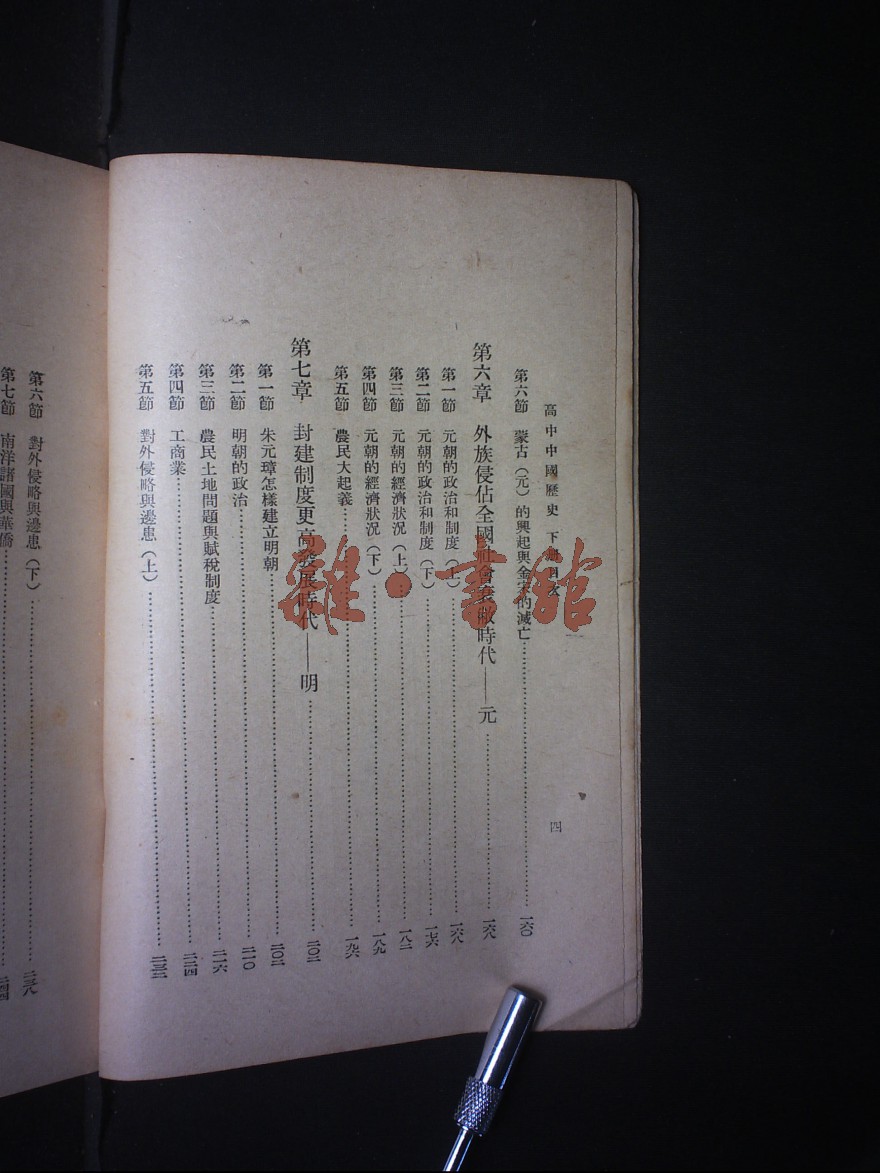 高中中國歷史 下冊目次
四
第六節 蒙古(元)的興起與金宋的滅亡……一六〇
第六章 外族侵佔全國社會衰敝時代——元……一六八
第一節 元朝的政治和制度(上)……一六八
第二節 元朝的政治和制度(下)……一七六
第三節 元朝的經濟狀況(上)……一八二
第四節 元朝的經濟狀況(下)……一八九
第五節 農民大起義……一九六
第七章 封建制度更高發展時代——明……二〇二
第一節 朱元璋怎樣建立明朝……二〇二
第二節 明朝的政治……二一〇
第三節 農民土地問題與賦稅制度……二一六
第四節 工商業……二二四
第五節 對外侵略與邊患(上)……二三二
第六節 對外侵略與邊患(下)……二三八
第七節 南洋諸國與華僑……二四四
雜·書館